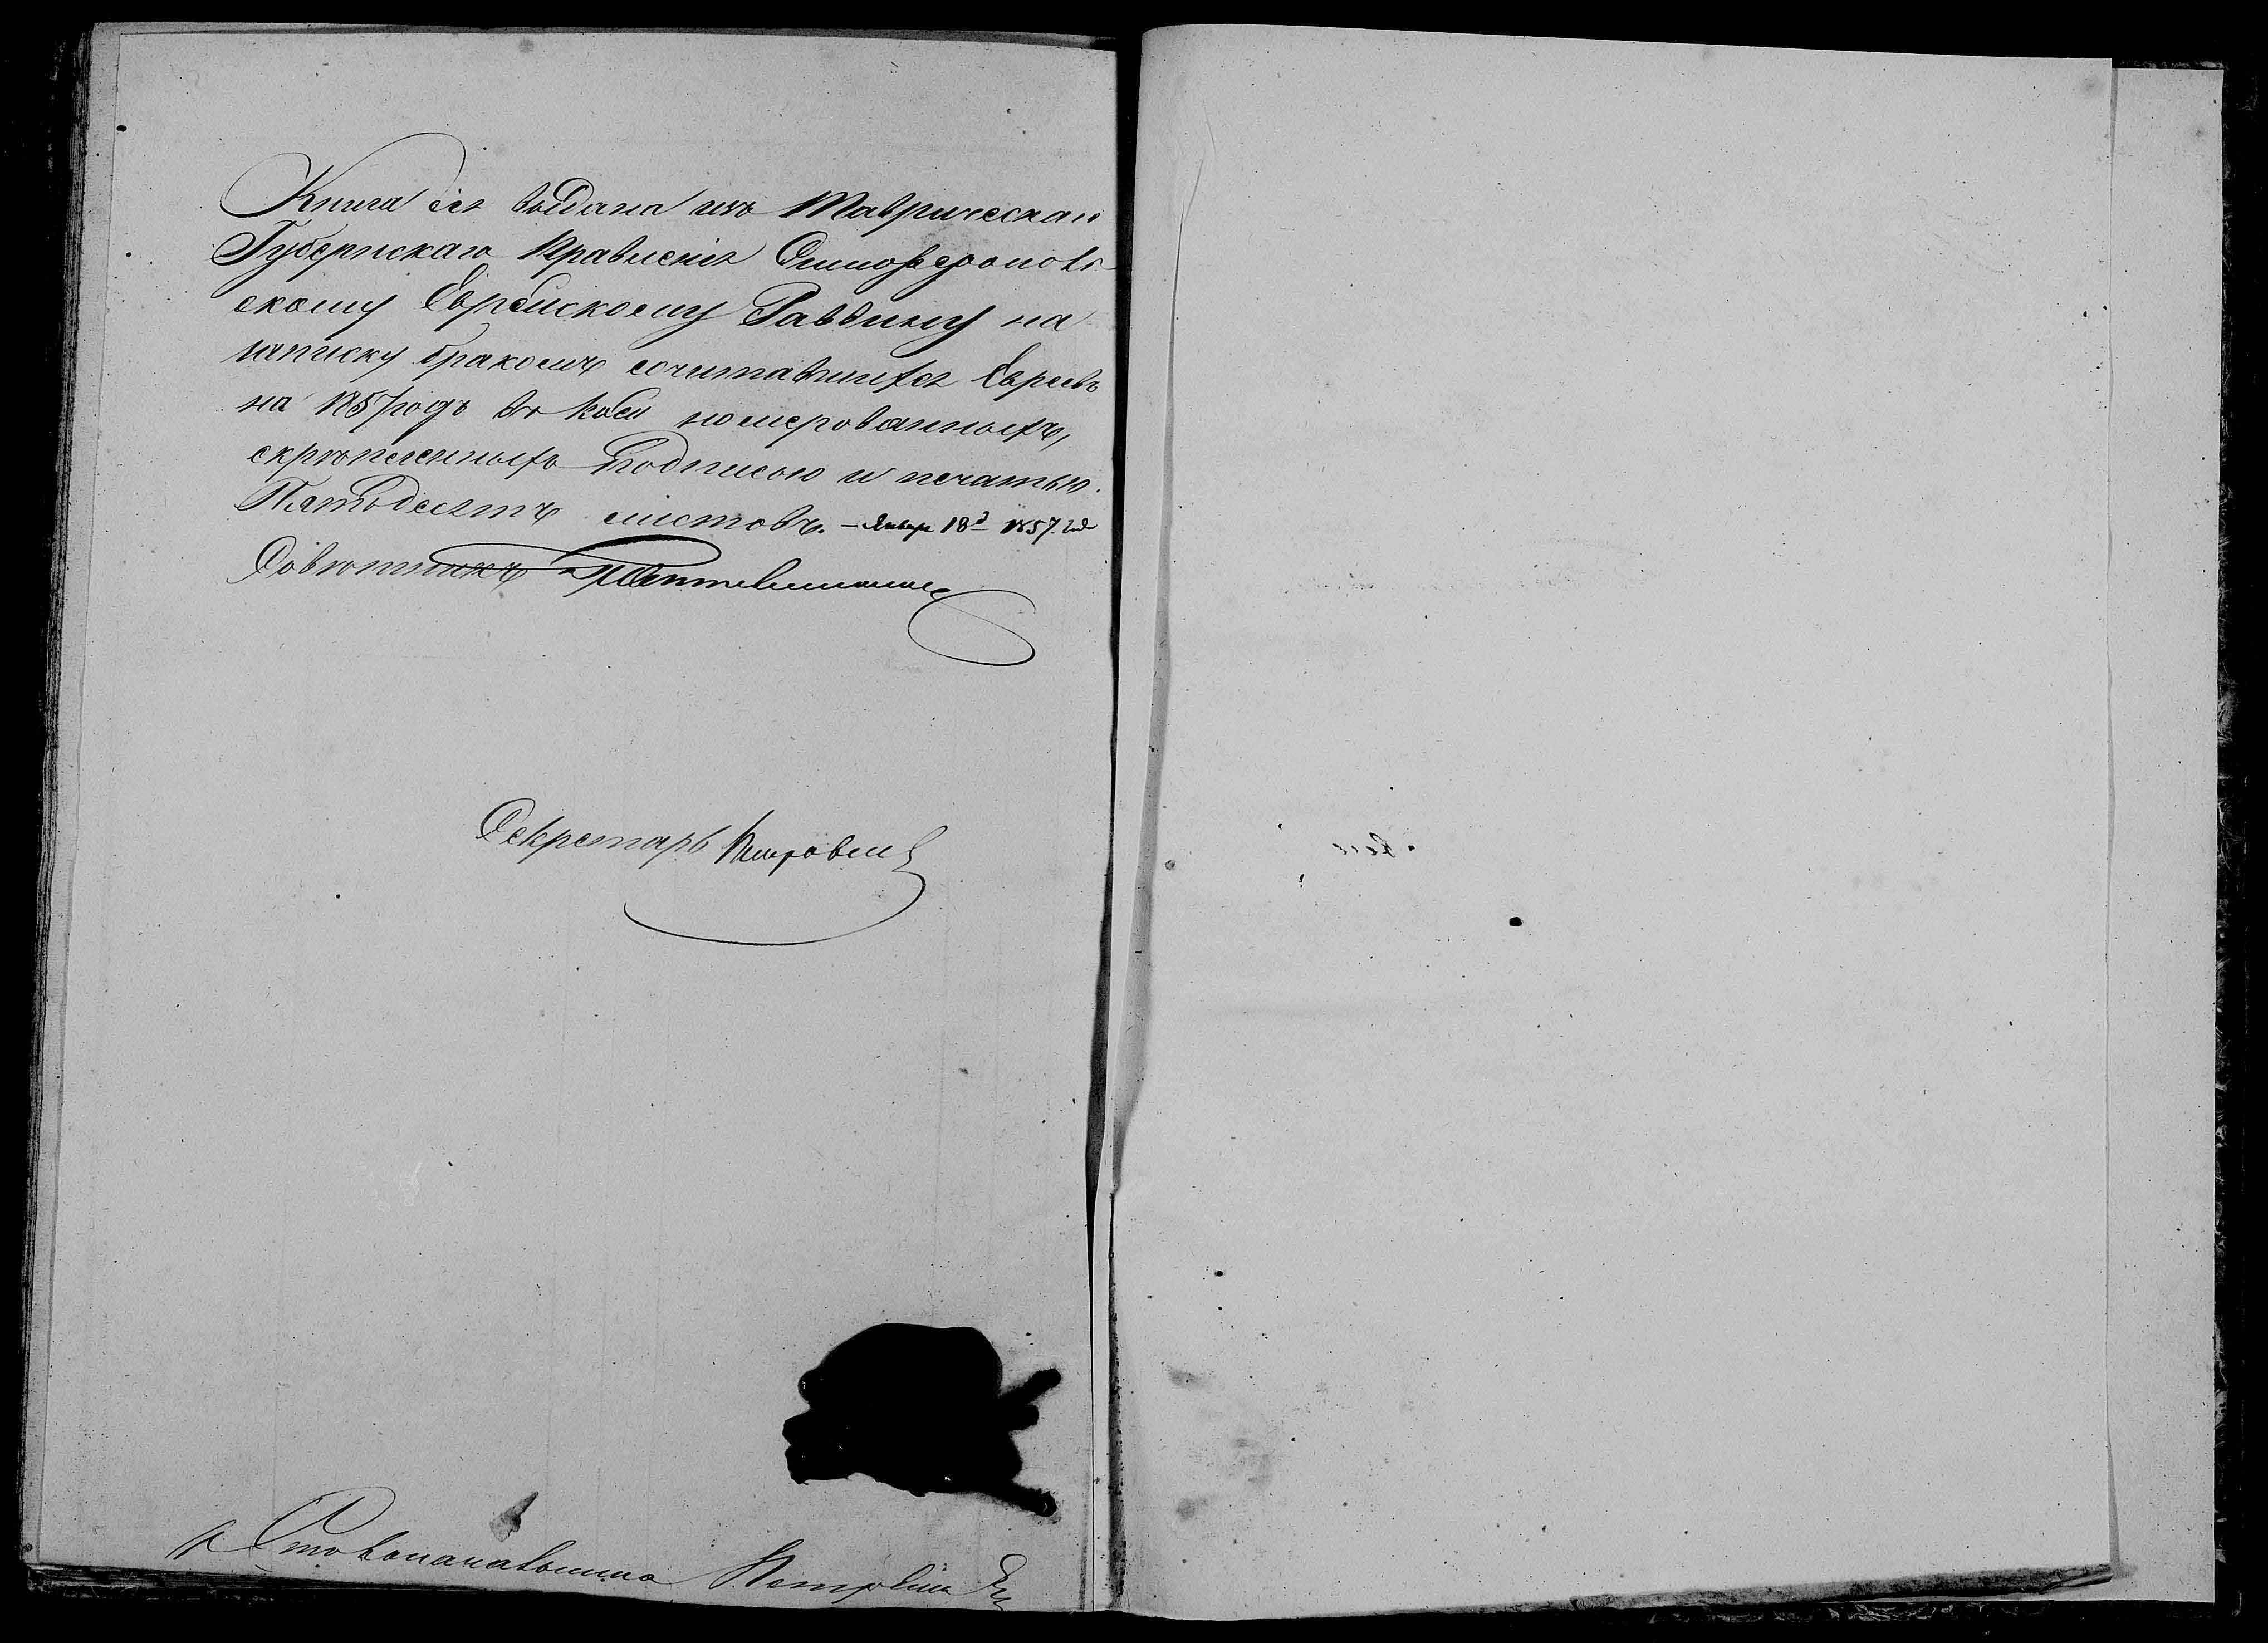 Книга сія выдана изъ Таврическаго
Губернскаго Правленія Симферополь-
скому Еврейскому Раввину на
записку бракомъ сочитавшихся Евреевъ
на 1857 годъ въ коей номерованныхъ,
скрѣпленныхъ подписью и печатью
Пятьдесятъ листовъ. – Январ 18 д 1857. года
Совѣтникъ
Секретарь
Столоначальника